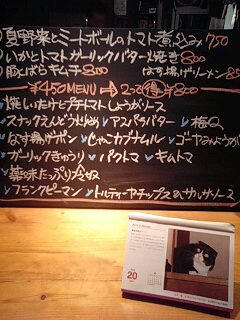 夏野菜とミートボールのトマト煮込み 750
いかとトマトガーリックバター焼き 800
豚ばらキムチ 800 なす揚げソーメン 85
¥450MENU → 2つで得 800
焼しいたけとプチトマトしょうがソース
スナックえんどうんめゆ アスパラバター 梅Q
なす揚げポン じゃこカブナムル ゴーヤさんようがけ
ガーリックきゅうり パクトマ キムトマ
薬味たっぷり冷奴
フランクピーマン トルティーヤチップス&サルサソース
20